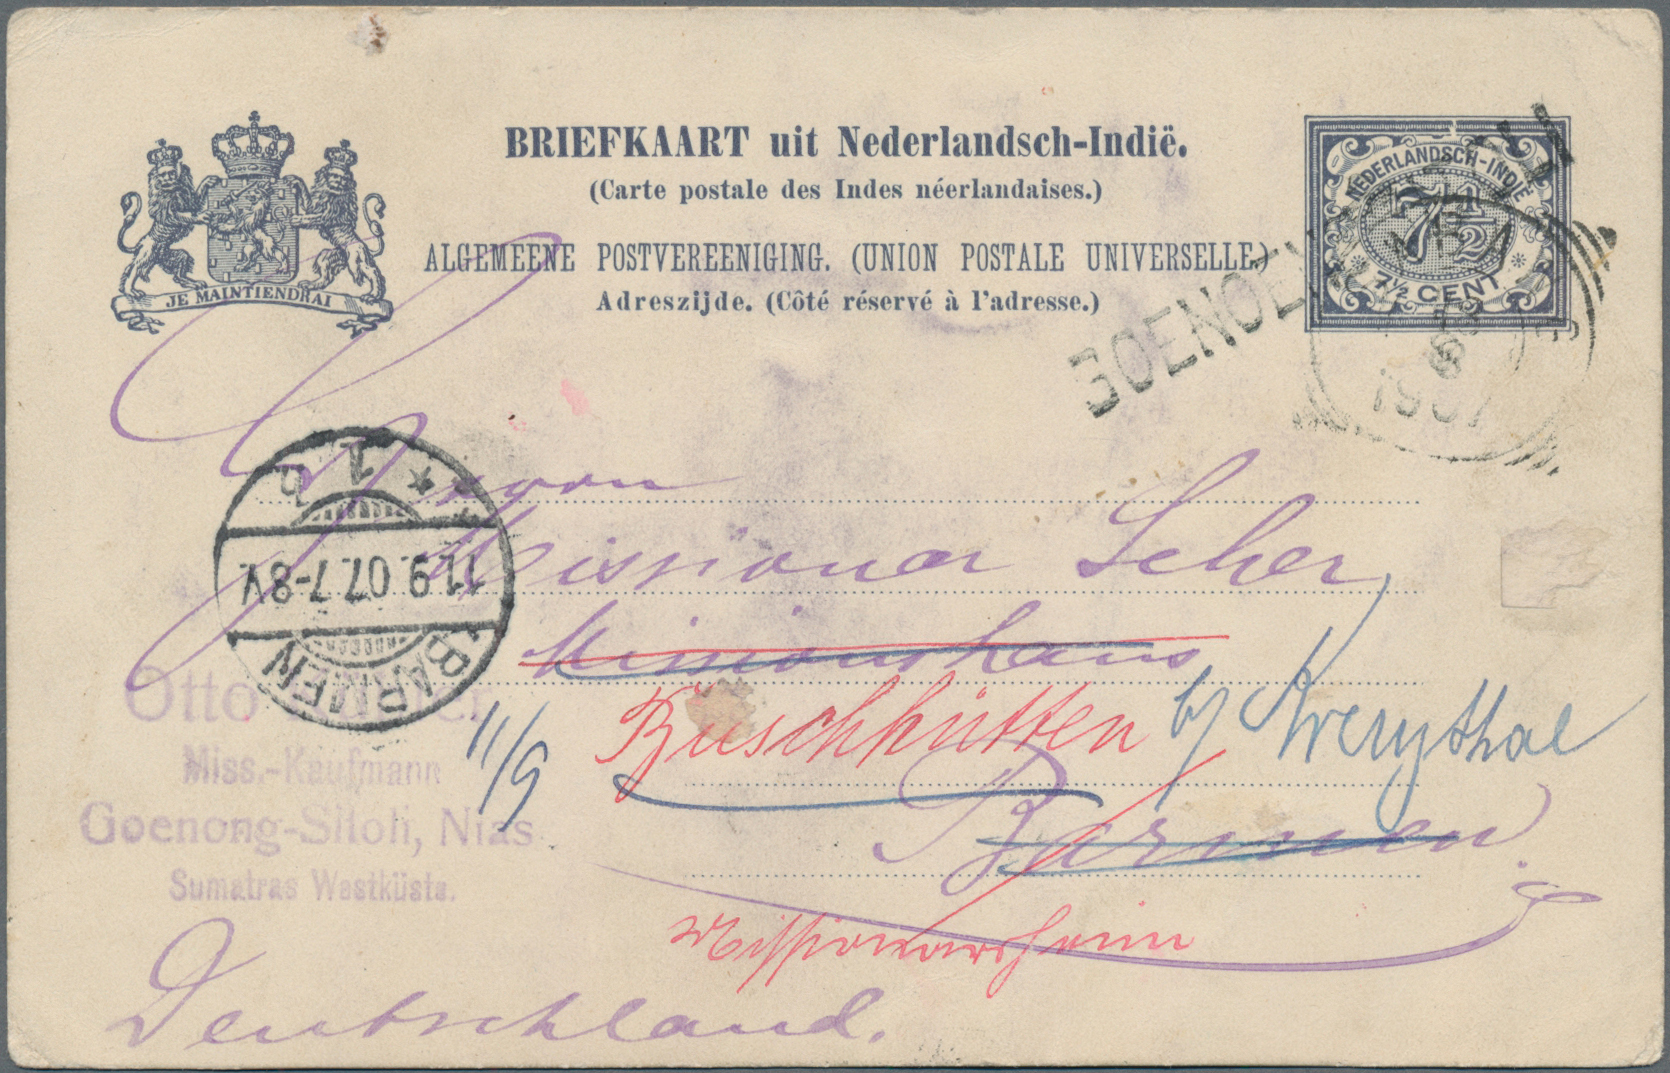 BRIEFKAART uit Nederlandsch-Indië.
(Carte postale des Indes néerlandaises.)
ALGEMEENE POSTVEREENIGING. (UNION POSTALE UNIVERSELLE.)
Adreszijde. (Côté réservé à l'adresse.)
JE MAINTIENDRAI
NEDERLANDSCH-INDIË
7½
7½ CENT
GOENOEN
1907
Herrn
Missionar
Missionshaus
Buschhütten b/ Kreuzthal
11/9
Barmen.
Missionarsheim
Deutschland.
1 b
11.9.07.7-8V.
BARMEN
Otto
Miss.-Kaufmann
Goenong-Sitoli, Nias
Sumatras Westküste.